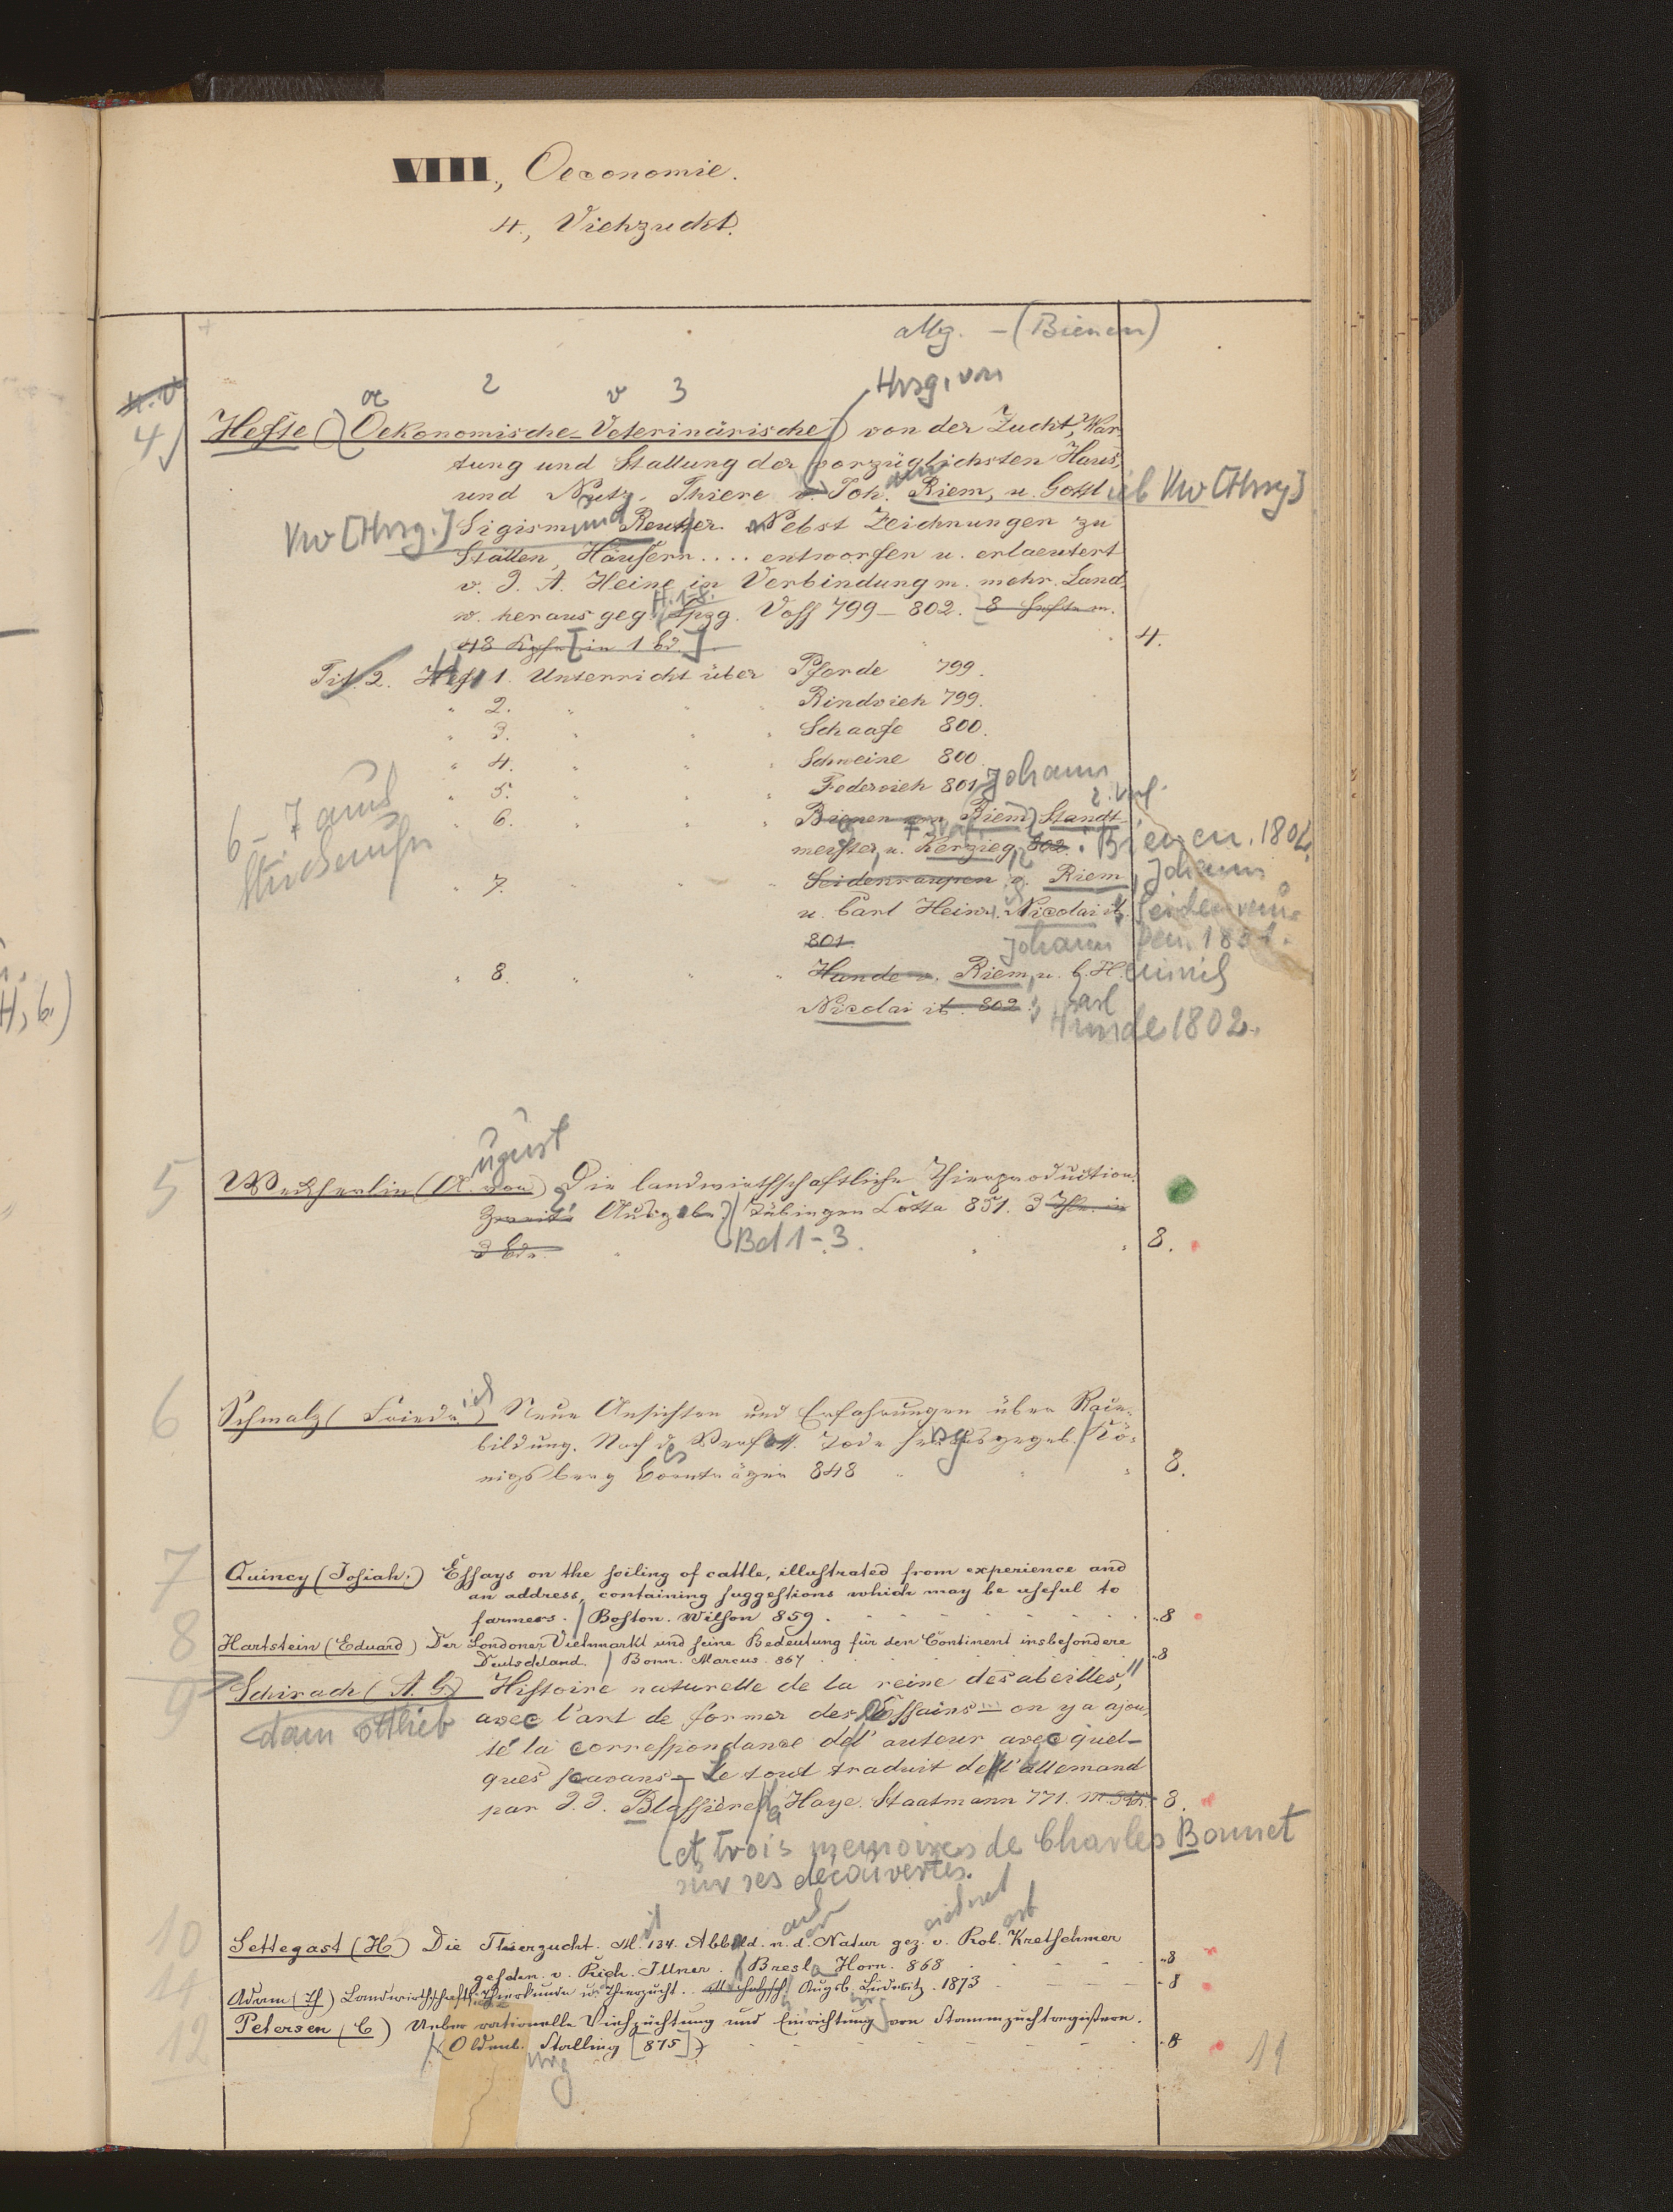 VIII, Oeconomie.
4., Viehzucht.
allg. – (Bienen)
oe 2 v 3 Hrsg. von
4) Hefte (Oekonomische-Veterinärische) von der Zucht, War-
tung und Stallung der vorzüglichsten Haus-
und Nutz-Thiere v. Joh. Riem, u. Gottl ieb Vw [Hrsg]
Vw [Hrsg.] Sigismund Reutter. Nebst Zeichnungen zu
Ställen, Häusern .... entworfen u. erlaeutert
v. J. A. Heine in Verbindung m. mehr. Land-
H. 1-8.
w. herausgeg. Lpzg. Voss 799–802. 8 Hefte m.
48 Kpfr [in 1 Bd.] 4.
Tit. 2. Heft 1. Unterricht über Pferde 799.
" 2. " " " Rindvieh 799.
" 3. " " " Schaafe 800.
" 4. " " " Schweine 800.
" 5. " " " Federvieh 801. Johann
" 6. " " " Bienen von Riem, Standt-
meister, u. Kerzieg, 802. : Bienen. 1802.
" 7. " " " Seidenraupen v. Riem, Johann
u. Carl Heinr. Nicolai it. Seidenrau-
801. pen. 1801.
Johann
" 8. " " " Hunde v. Riem, u. C. H. einrich
Nicolai it. 802. Carl
Hunde 1802.
6–7 aus
ugust
5 Weckherlin (A. von) Die landwirthschaftliche Thierproduction.
Zweite Ausgabe. Tübingen Cotta 851. 3 Thle. in
3 Bdn. Bd 1–3. 8.
6 Schmalz (Friedr. ich) Neue Ansichten und Erfahrungen über Race-
bildung. Nach d. es Verfass. Tode herausgegeb. Kö-
nigsberg Bornträger 848 8.
7 Quincy (Josiah.) Essays on the soiling of cattle, illustrated from experience and
an address, containing suggestions which may be useful to
farmers. Boston. Wilson 859. 8
8 Hartstein (Eduard) Der Londoner Viehmarkt und seine Bedeutung für den Continent insbesondere
Deutschland. Bonn. Marcus. 867 8
9 Schirach (A. G.) Histoire naturelle de la reine des abeilles,
dam ottlieb avec l'art de former des Essains — on y a ajou-
té la correspondance de l'auteur avec quel-
ques sçavans — Le tout traduit de l'allemand
par J. J. Blassière, la Haye. Staatmann 771. 8.
et trois memoires de Charles Bonnet
sur ses découvertes.
10 Settegast (H.) Die Thierzucht. M. it 134. Abbild. n. d. Natur gez. v. Rob. Kretschmer
geschn. v. Rich. Illner. Bresl. Horn. 868 8
11 Adam (Th) Landwirthschaftl. Thierkunde u. Thierzucht. Augsb. Lüderitz. 1873 8
12 Petersen (C) Ueber rationelle Viehzüchtung und Einrichtung von Stammzuchtregistern.
(Oldenb. urg Stalling [875]) 8
11